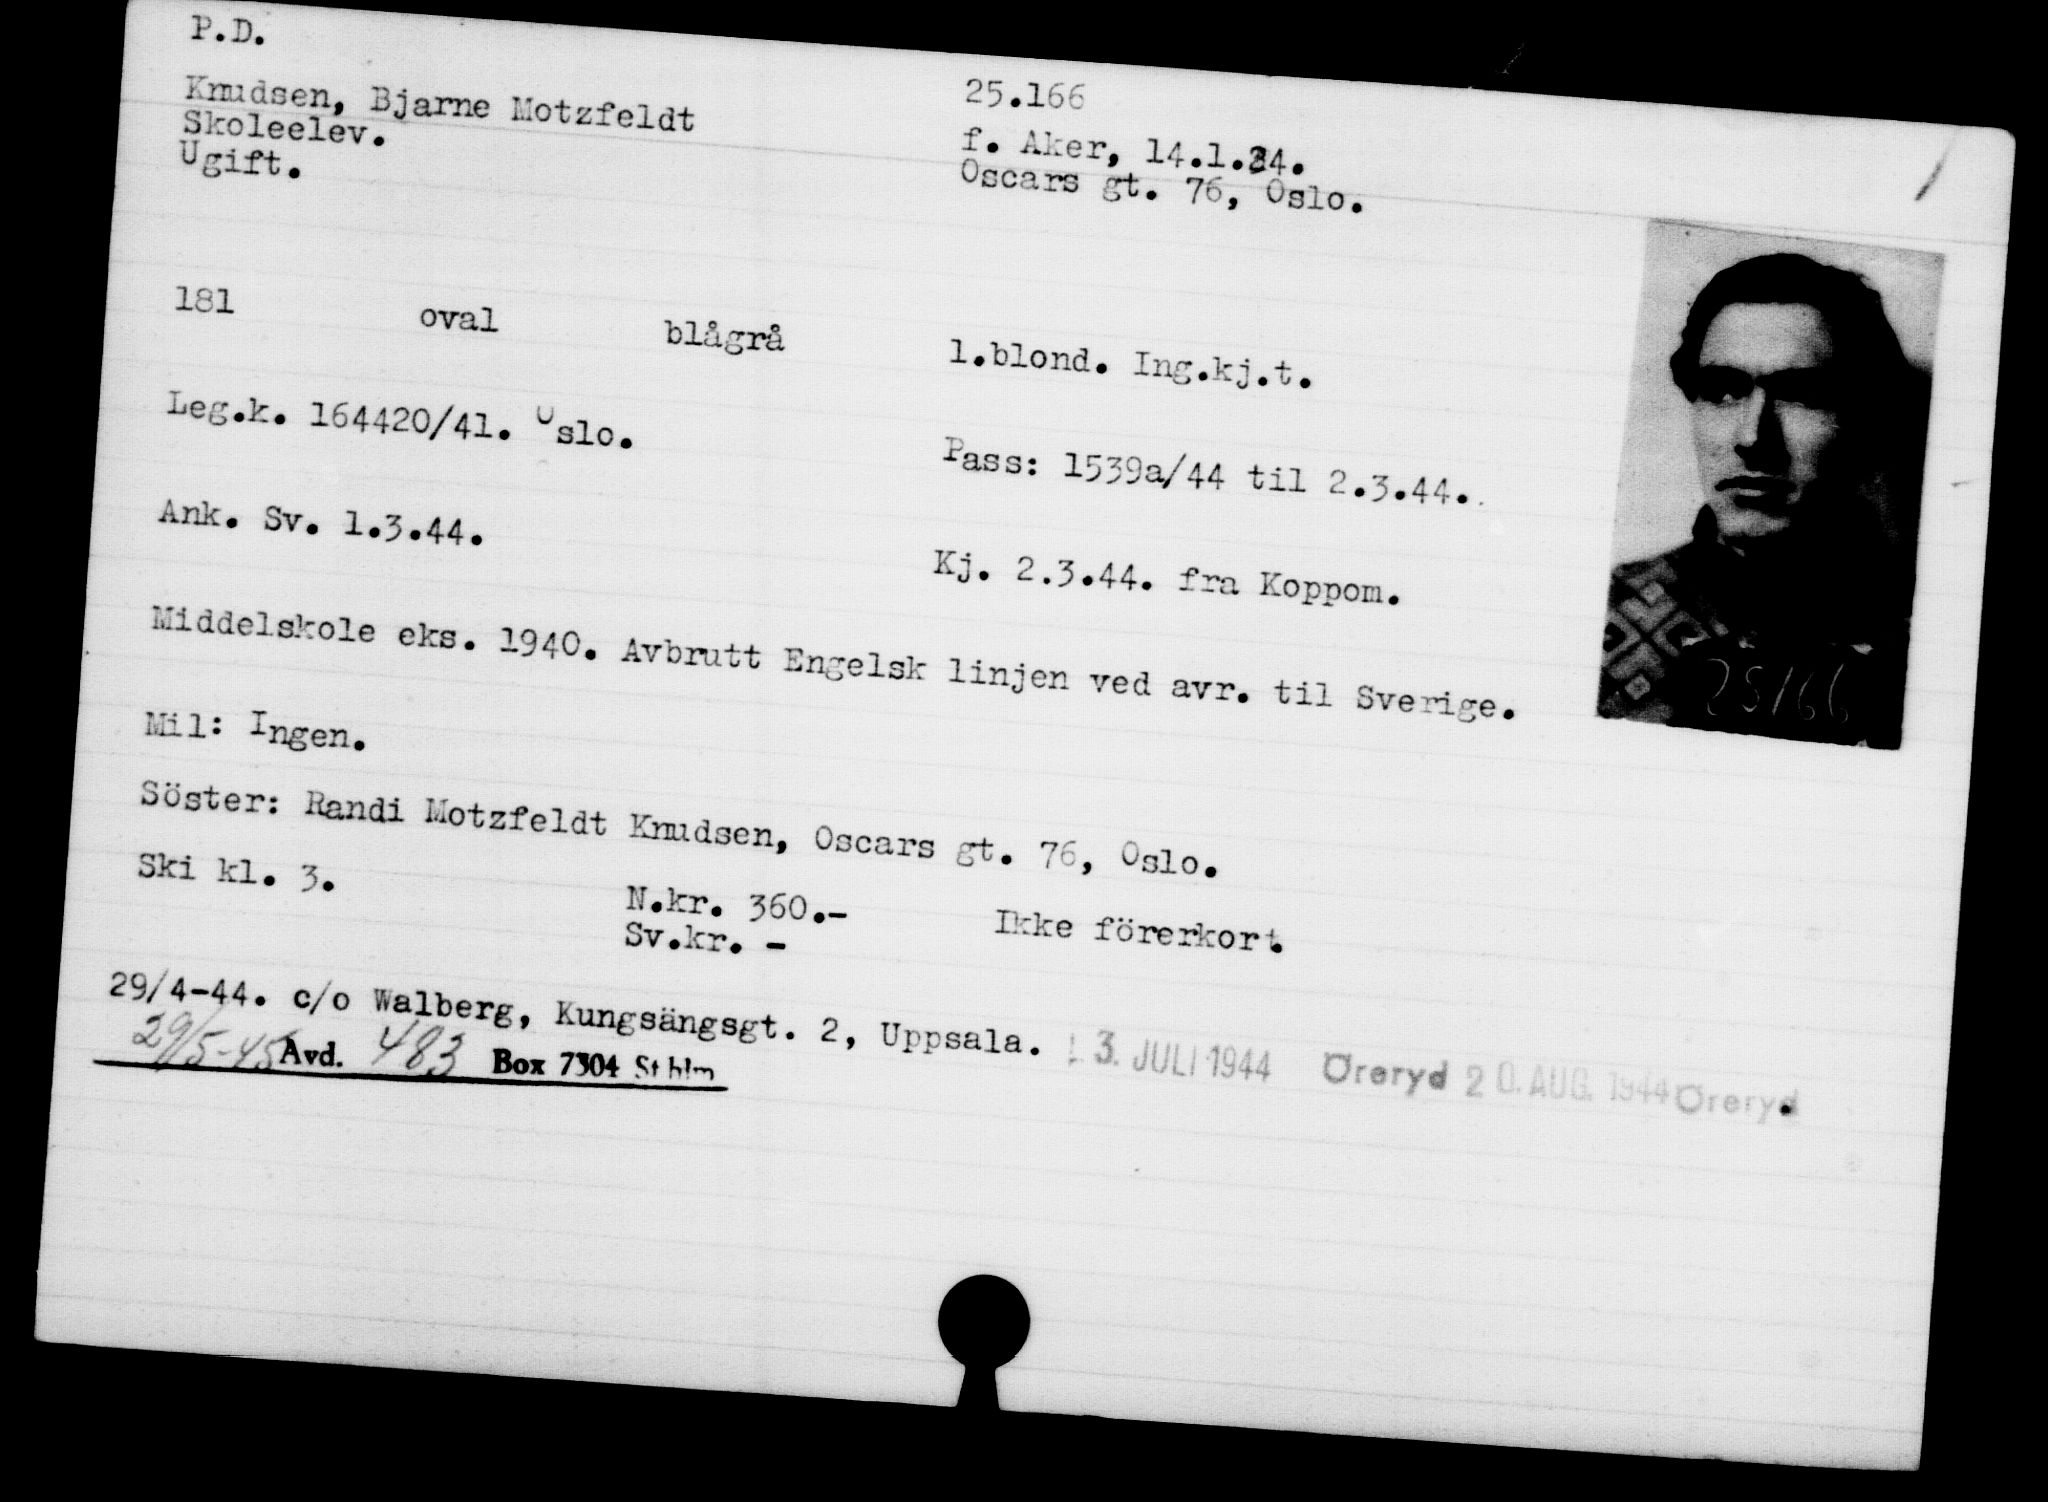 P.D.
Knudsen, Bjarne Motzfeldt 25.166
Skoleelev. f. Aker, 14.1.24.
Ugift. Oscars gt. 76, Oslo.
181 oval blågrå l.blond. Ing.kj.t.
Leg.k. 164420/41. Oslo. Pass: 1539a/44 til 2.3.44.
Ank. Sv. 1.3.44. Kj. 2.3.44. fra Koppom.
Middelskole eks. 1940. Avbrutt Engelsk linjen ved avr. til Sverige.
25166
Mil: Ingen.
Söster: Randi Motzfeldt Knudsen, Oscars gt. 76, Oslo.
Ski kl. 3. N.kr. 360.- Ikke förerkort.
Sv.kr. -
29/4-44. c/o Walberg, Kungsängsgt. 2, Uppsala. 3. JULI 1944 Öreryd 20. AUG. 1944 Öreryd.
29/5-45 Avd. 483 Box 7304 Sthlm